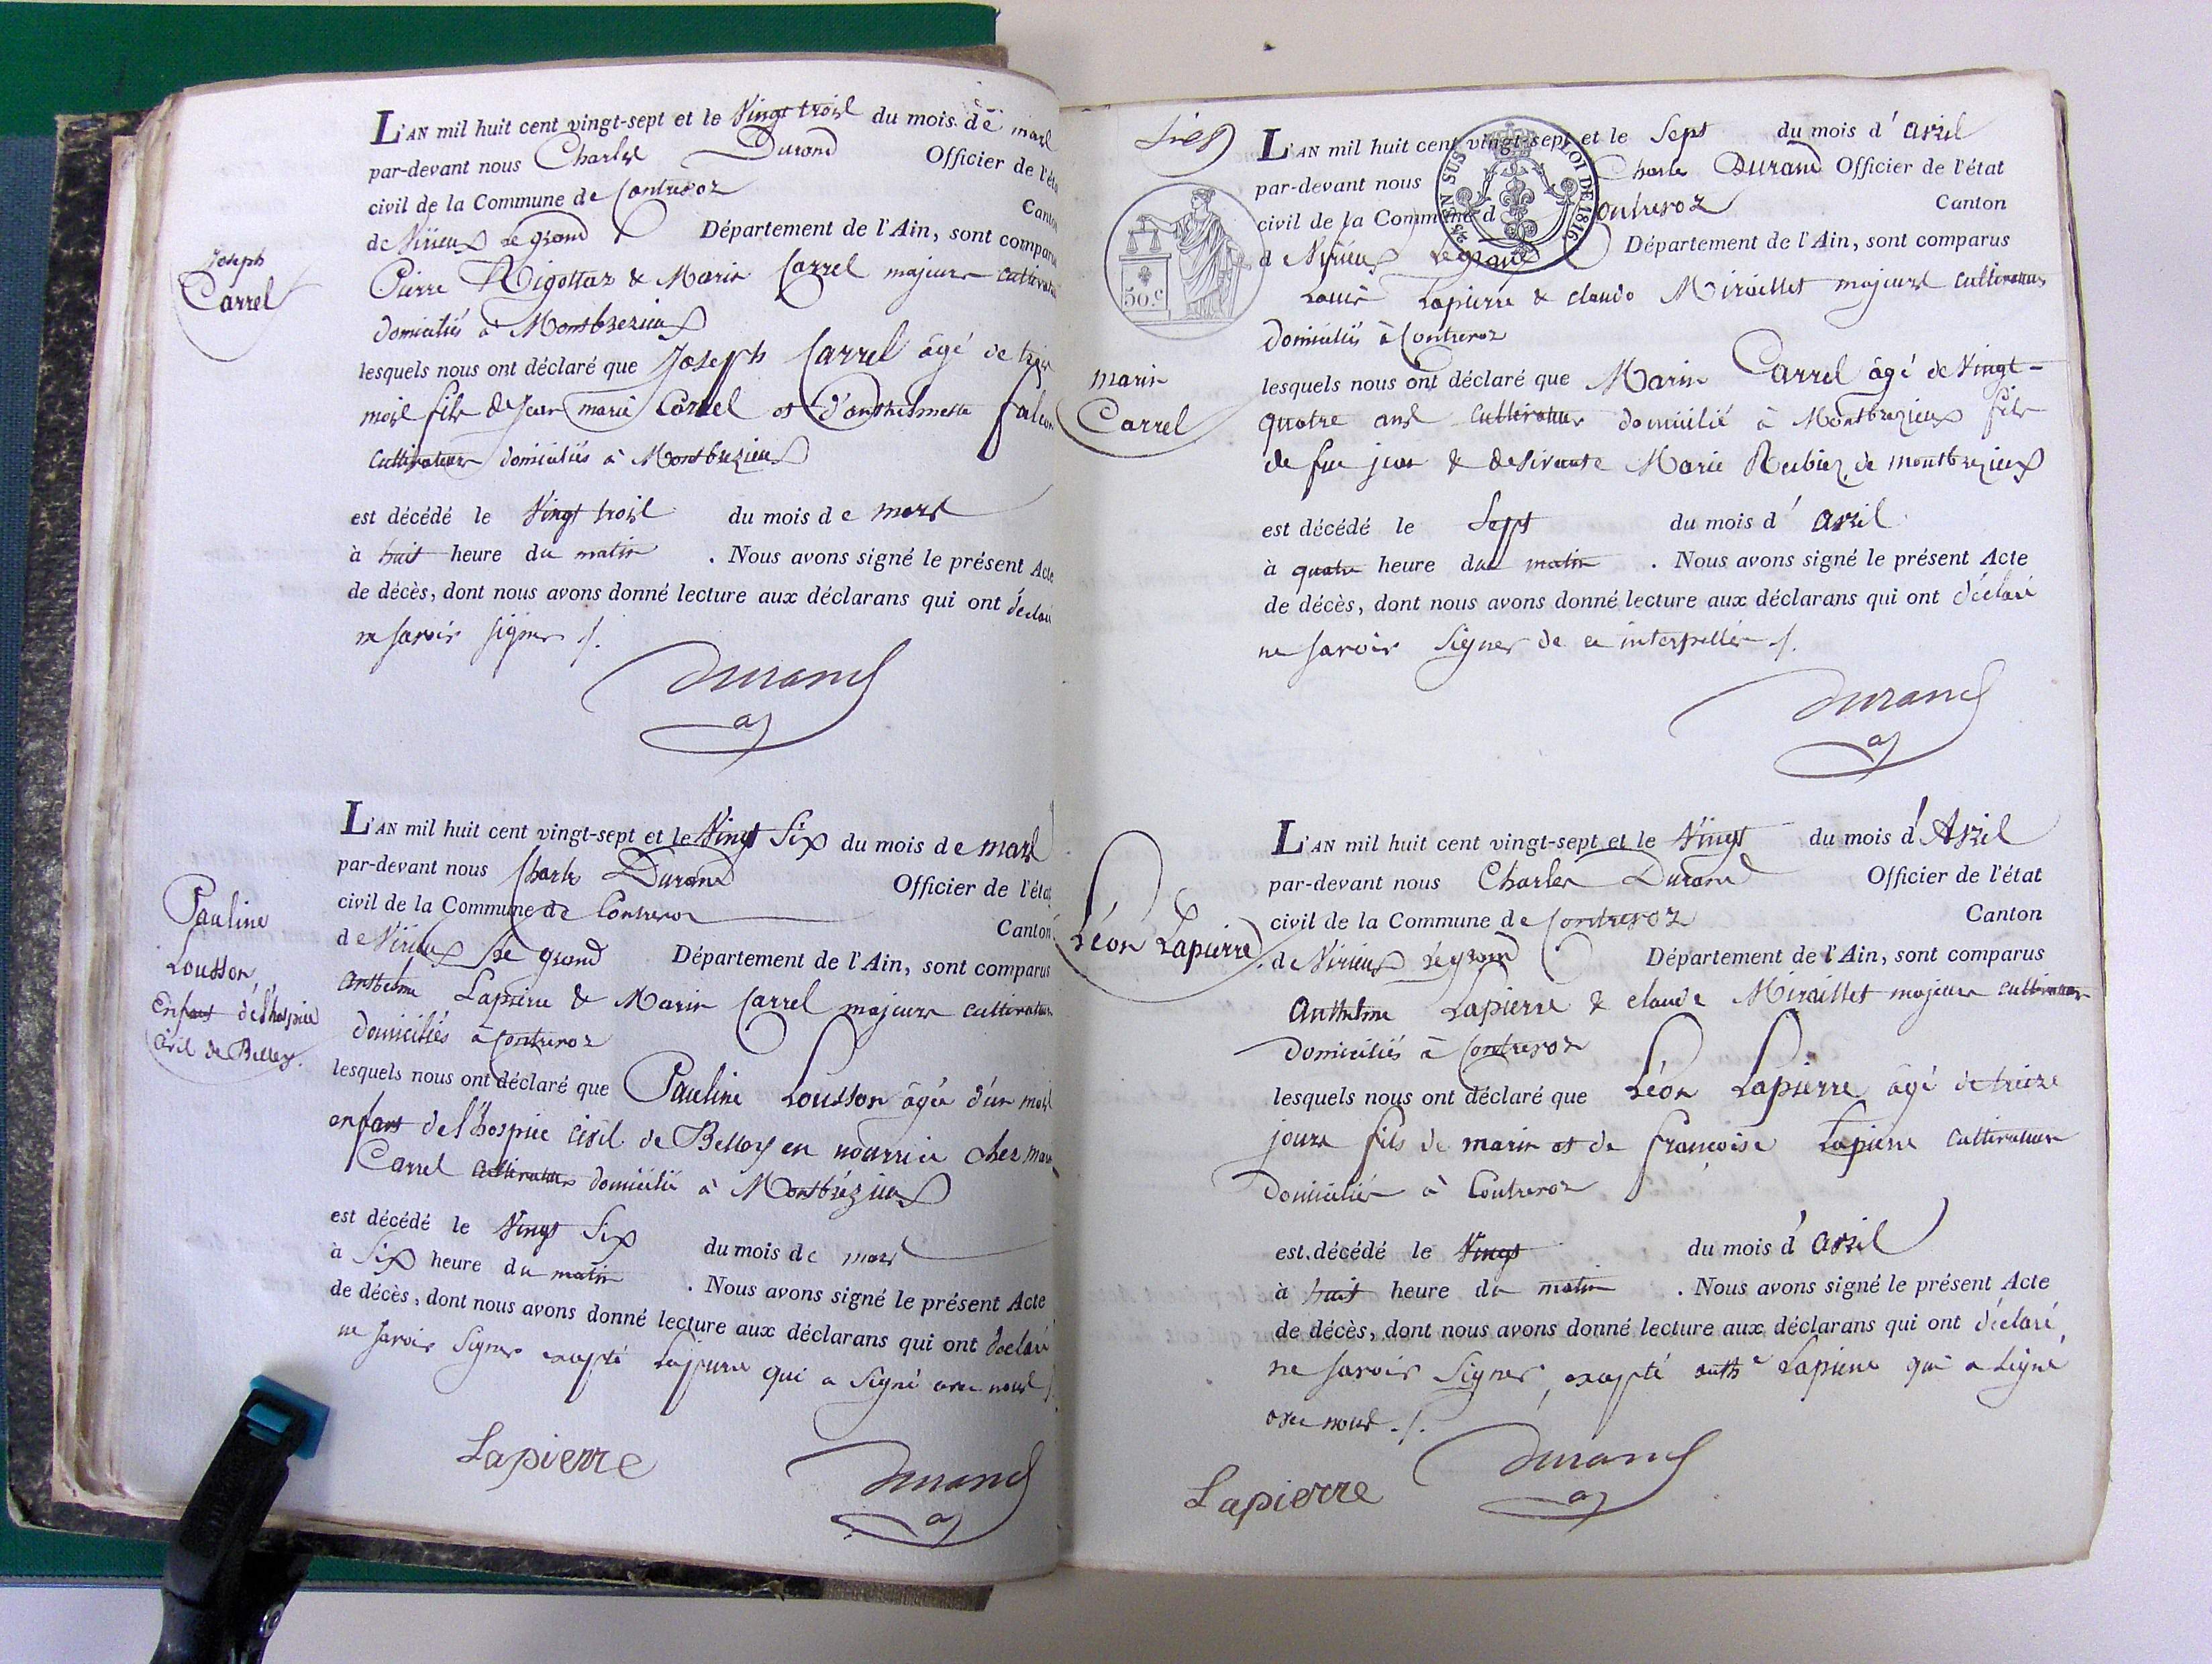 L'AN mil huit cent vingt-sept et le Vingt trois du mois de mars
par-devant nous Charles Durand Officier de l'éta
civil de la Commune de Contrevoz Canton
de Virieux le grand Département de l'Ain, sont comparu
Pierre Rigottaz & Marin Carrel majeurs cultivateu
domiciliés à Montbrezieux
lesquels nous ont déclaré que Joseph Carrel âgé de trois
mois fils de Jean marie Carrel et d'anthelmette falcon
cultivateurs domiciliés à Montbrezieux
est décédé le Vingt trois du mois de mars
à huit heure du matin . Nous avons signé le présent Acte
de décès, dont nous avons donné lecture aux déclarans qui ont déclaré
ne savoir signer ./.
Durand
Joseph
Carrel
L'AN mil huit cent vingt-sept et le Vingt Six du mois de mars
par-devant nous Charles Durand Officier de l'état
civil de la Commune de Contrevoz Canton
de Virieux le grand Département de l'Ain, sont comparus
Anthelme Lapierre & Marin Carrel majeurs cultivateurs
domiciliés à Contrevoz
lesquels nous ont déclaré que Pauline Lousson âgée d'un mois
enfant de l'hospice civil de Belley en nourrice chez marin
Carrel cultivateur domicilié à Montbrézieux
est décédé le Vingt Six du mois de mars
à Six heure du matin . Nous avons signé le présent Acte
de décès, dont nous avons donné lecture aux déclarans qui ont déclaré
ne savoir signer excepté Lapierre qui a signé avec nous ./.
Lapierre Durand
Pauline
Lousson,
Enfant de l'hospice
Civil de Belley.
L'AN mil huit cent vingt-sept et le Sept du mois d'avril
par-devant nous Charles Durand Officier de l'état
civil de la Commune d Contrevoz Canton
d Virieux le grand Département de l'Ain, sont comparus
Louis Lapierre & claude Miraillet majeurs cultivateurs
domiciliés à Contrevoz
lesquels nous ont déclaré que Marin Carrel âgé de Vingt-
quatre ans cultivateur domicilié à Montbrezieux fils
de feu jean & de vivante Marie Rubiez de montbrezieux
est décédé le Sept du mois d'avril
à quatre heure du matin . Nous avons signé le présent Acte
de décès, dont nous avons donné lecture aux déclarans qui ont déclaré
ne savoir signer de ce interpellés ./.
Durand
50.c
25 EN SUS LOI DE 1816
marin
Carrel
L'AN mil huit cent vingt-sept et le Vingt du mois d'Avril
par-devant nous Charles Durand Officier de l'état
civil de la Commune de Contrevoz Canton
de Virieux le grand Département de l'Ain, sont comparus
Anthelme Lapierre & claude Miraillet majeurs cultivateurs
domiciliés à Contrevoz
lesquels nous ont déclaré que Léon Lapierre âgé de treize
jours fils de marin et de françoise Lapierre cultivateurs
domiciliés à Contrevoz
est décédé le Vingt du mois d'avril
à huit heure du matin . Nous avons signé le présent Acte
de décès, dont nous avons donné lecture aux déclarans qui ont déclaré
ne savoir signer, excepté anth.e Lapierre qui a signé
avec nous ./.
Lapierre Durand
Léon Lapierre